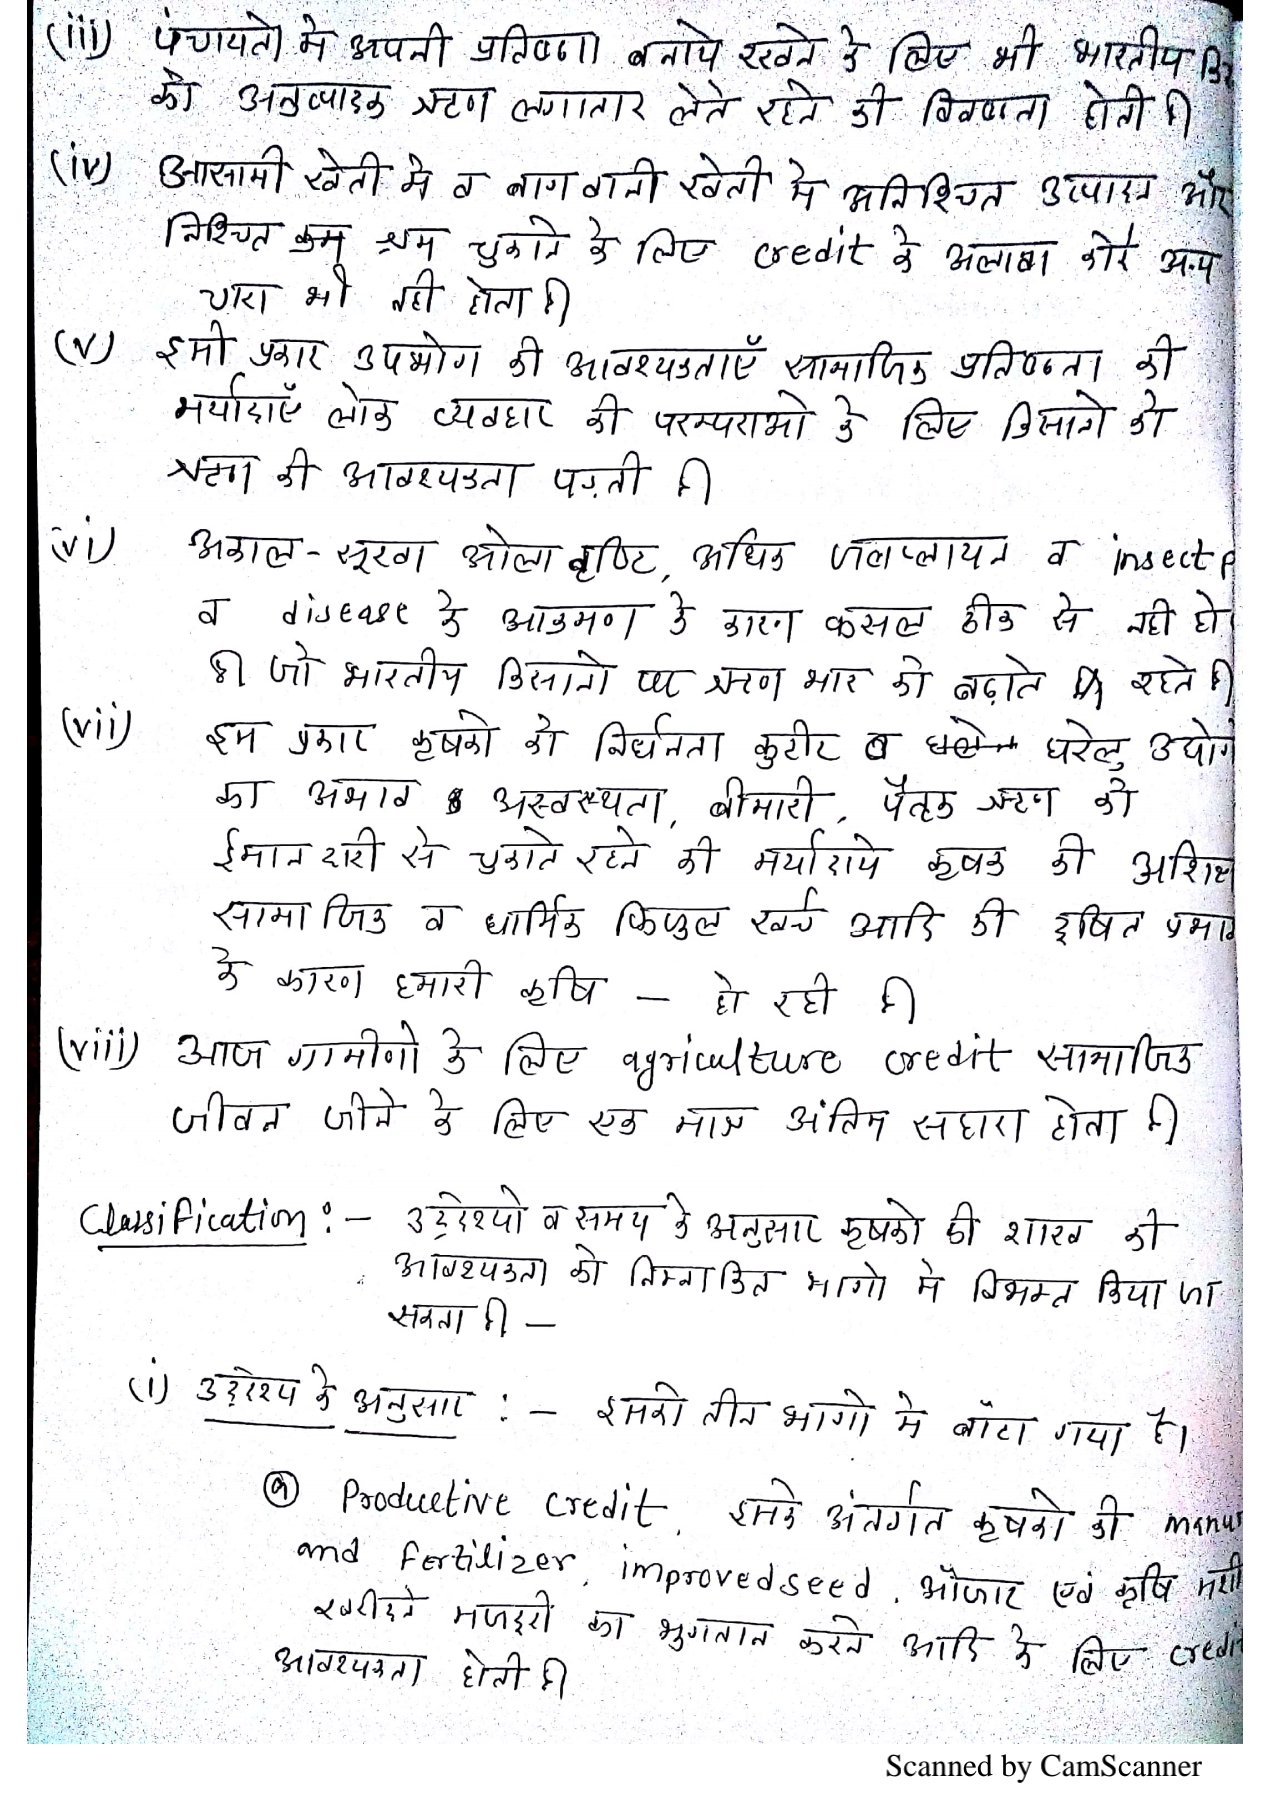 (iii) पंचायतो मे अपनी प्रतिष्ठा बनाये रखने के लिए भी भारतीय
को अनुत्पादक ऋण लगातार लेते रहने की विवशता होती है।
(iv) आसामी खेती मे व बागवानी खेती मे अनिश्चित उत्पादन और
निश्चित कम श्रम चुकाने के लिए credit के अलावा कोई अन्य
चारा भी नही होता है।
(v) इसी प्रकार उपभोग की आवश्यकताएँ सामाजिक प्रतिष्ठता की
मर्यादाएँ लोक व्यवहार की परम्पराओ के लिए किसानो को
ऋण की आवश्यकता पड़ती है।
(vi) अकाल - सूखा ओला वृष्टि, अधिक जलप्लायन व insect
व disease के आक्रमण के कारण फसल ठीक से नही हो
है। जो भारतीय किसानो पर ऋण भार को बढ़ाते रहते है।
(vii) इस प्रकार कृषको की निर्धनता कुटीर व घरेलु उद्योग
का अभाव अस्वस्थता, बीमारी, पैतृक ऋण को
ईमानदारी से चुकाते रहने की मर्यादाये कृषक की
सामाजिक व धार्मिक फिजुल खर्च आदि की दूषित प्रभाव
के कारण हमारी कृषि — हो रही है।
(viii) आज ग्रामीणो के लिए agriculture credit सामाजिक
जीवन जीने के लिए एक मात्र अंतिम सहारा होता है।
Classification : — उद्देश्यो व समय के अनुसार कृषको की शाख की
आवश्यकता को निम्नांकित भागो मे विभक्त किया जा
सकता है। —
(i) उद्देश्य के अनुसार : — इसको तीन भागो मे बाँटा गया है।
(a) Productive credit. इसके अंतर्गत कृषको की
and fertilizer, improved seed, औजार एवं कृषि
खरीदने मजदूरी का भुगतान करने आदि के लिए credit
आवश्यकता होती है।
Scanned by CamScanner